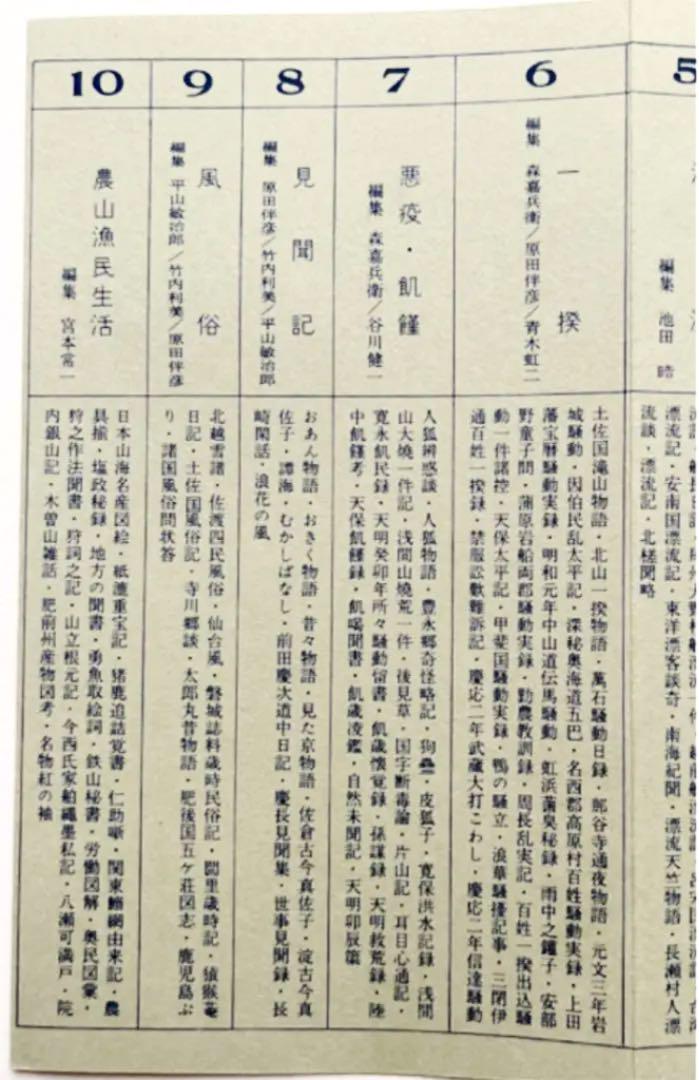 5
編集 池田 晧
漂流記・安南国漂流記・東洋漂客談奇・南海紀聞・漂流天竺物語・長瀬村人漂
流談・漂流記・北槎聞略
6
一揆
編集 森嘉兵衛/原田伴彦/青木虹二
土佐国滝山物語・北山一揆物語・萬石騒動日録・那谷寺通夜物語・元文三年岩
城騒動・因伯民乱太平記・深秘奥海道五巴・名西郡高原村百姓騒動実録・上田
藩宝暦騒動実録・明和元年中山道伝馬騒動・虹浜薈臭秘録・雨中之鑵子・安部
野童子問・蒲原岩船両郡騒動実録・勧農教訓録・周長乱実記・百姓一揆出込騒
動一件諸控・天保太平記・甲斐国騒動実録・鴨の騒立・浪華騒擾記事・三閉伊
通百姓一揆録・禁服訟歎難訴記・慶応二年武蔵大打こわし・慶応二年信達騒動
7
悪疫・飢饉
編集 森嘉兵衛/谷川健一
人狐辨惑談・人狐物語・豊永郷奇怪略記・狗・皮狐子・寛保洪水記録・浅間
山大焼一件記・浅間山焼荒一件・後見草・国字断毒論・片山記・耳目心通記・
寛永飢民録・天明癸卯年所々騒動留書・飢歳懐覚録・孫謀録・天明救荒録・陸
中飢饉考・天保飢饉録・飢喝聞書・飢歳凌鑑・自然未聞記・天明卯辰簗
8
見聞記
編集 原田伴彦/竹内利美/平山敏治郎
おあん物語・おきく物語・昔々物語・見た京物語・佐倉古今真佐子・淀古今真
佐子・譚海・むかしばなし・前田慶次道中日記・慶長見聞集・世事見聞録・長
崎閑話・浪花の風
9
風俗
編集 平山敏治郎/竹内利美/原田伴彦
北越雪譜・佐渡四民風俗・仙台風・磐城誌料歳時民俗記・閭里歳時記・猿猴菴
日記・土佐国風俗記・寺川郷談・太郎丸昔物語・肥後国五ケ荘図志・鹿児島ぶ
り・諸国風俗問状答
10
農山漁民生活
編集 宮本常一
日本山海名産図絵・紙漉重宝記・猪鹿追詰覚書・仁助噺・関東鰯網由来記・農
具揃・塩政秘録・地方の聞書・勇魚取絵詞・鉄山秘書・労働図解・奥民図彙・
狩之作法聞書・狩詞之記・山立根元記・今西氏家舶縄墨私記・八瀬可満戸・院
内銀山記・木曽山雑話・肥前州産物図考・名物紅の袖